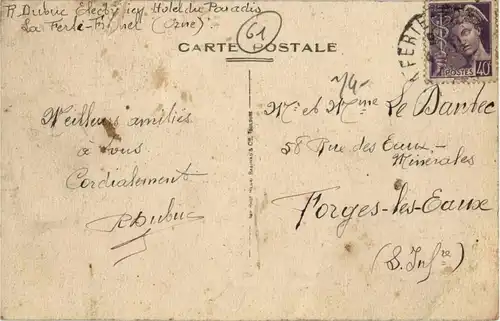 R. Dubuc Electricien Hotel du Paradis
La Ferté-Fresnel (Orne)
61
CARTE POSTALE
FERTE-FR
POSTES 40
Meilleurs amitiés
à vous
Cordialement
R Dubuc
Mr et Mme Le Dantec
58 Rue des Eaux-
Minérales
Forges-les-Eaux
(S. Infre)